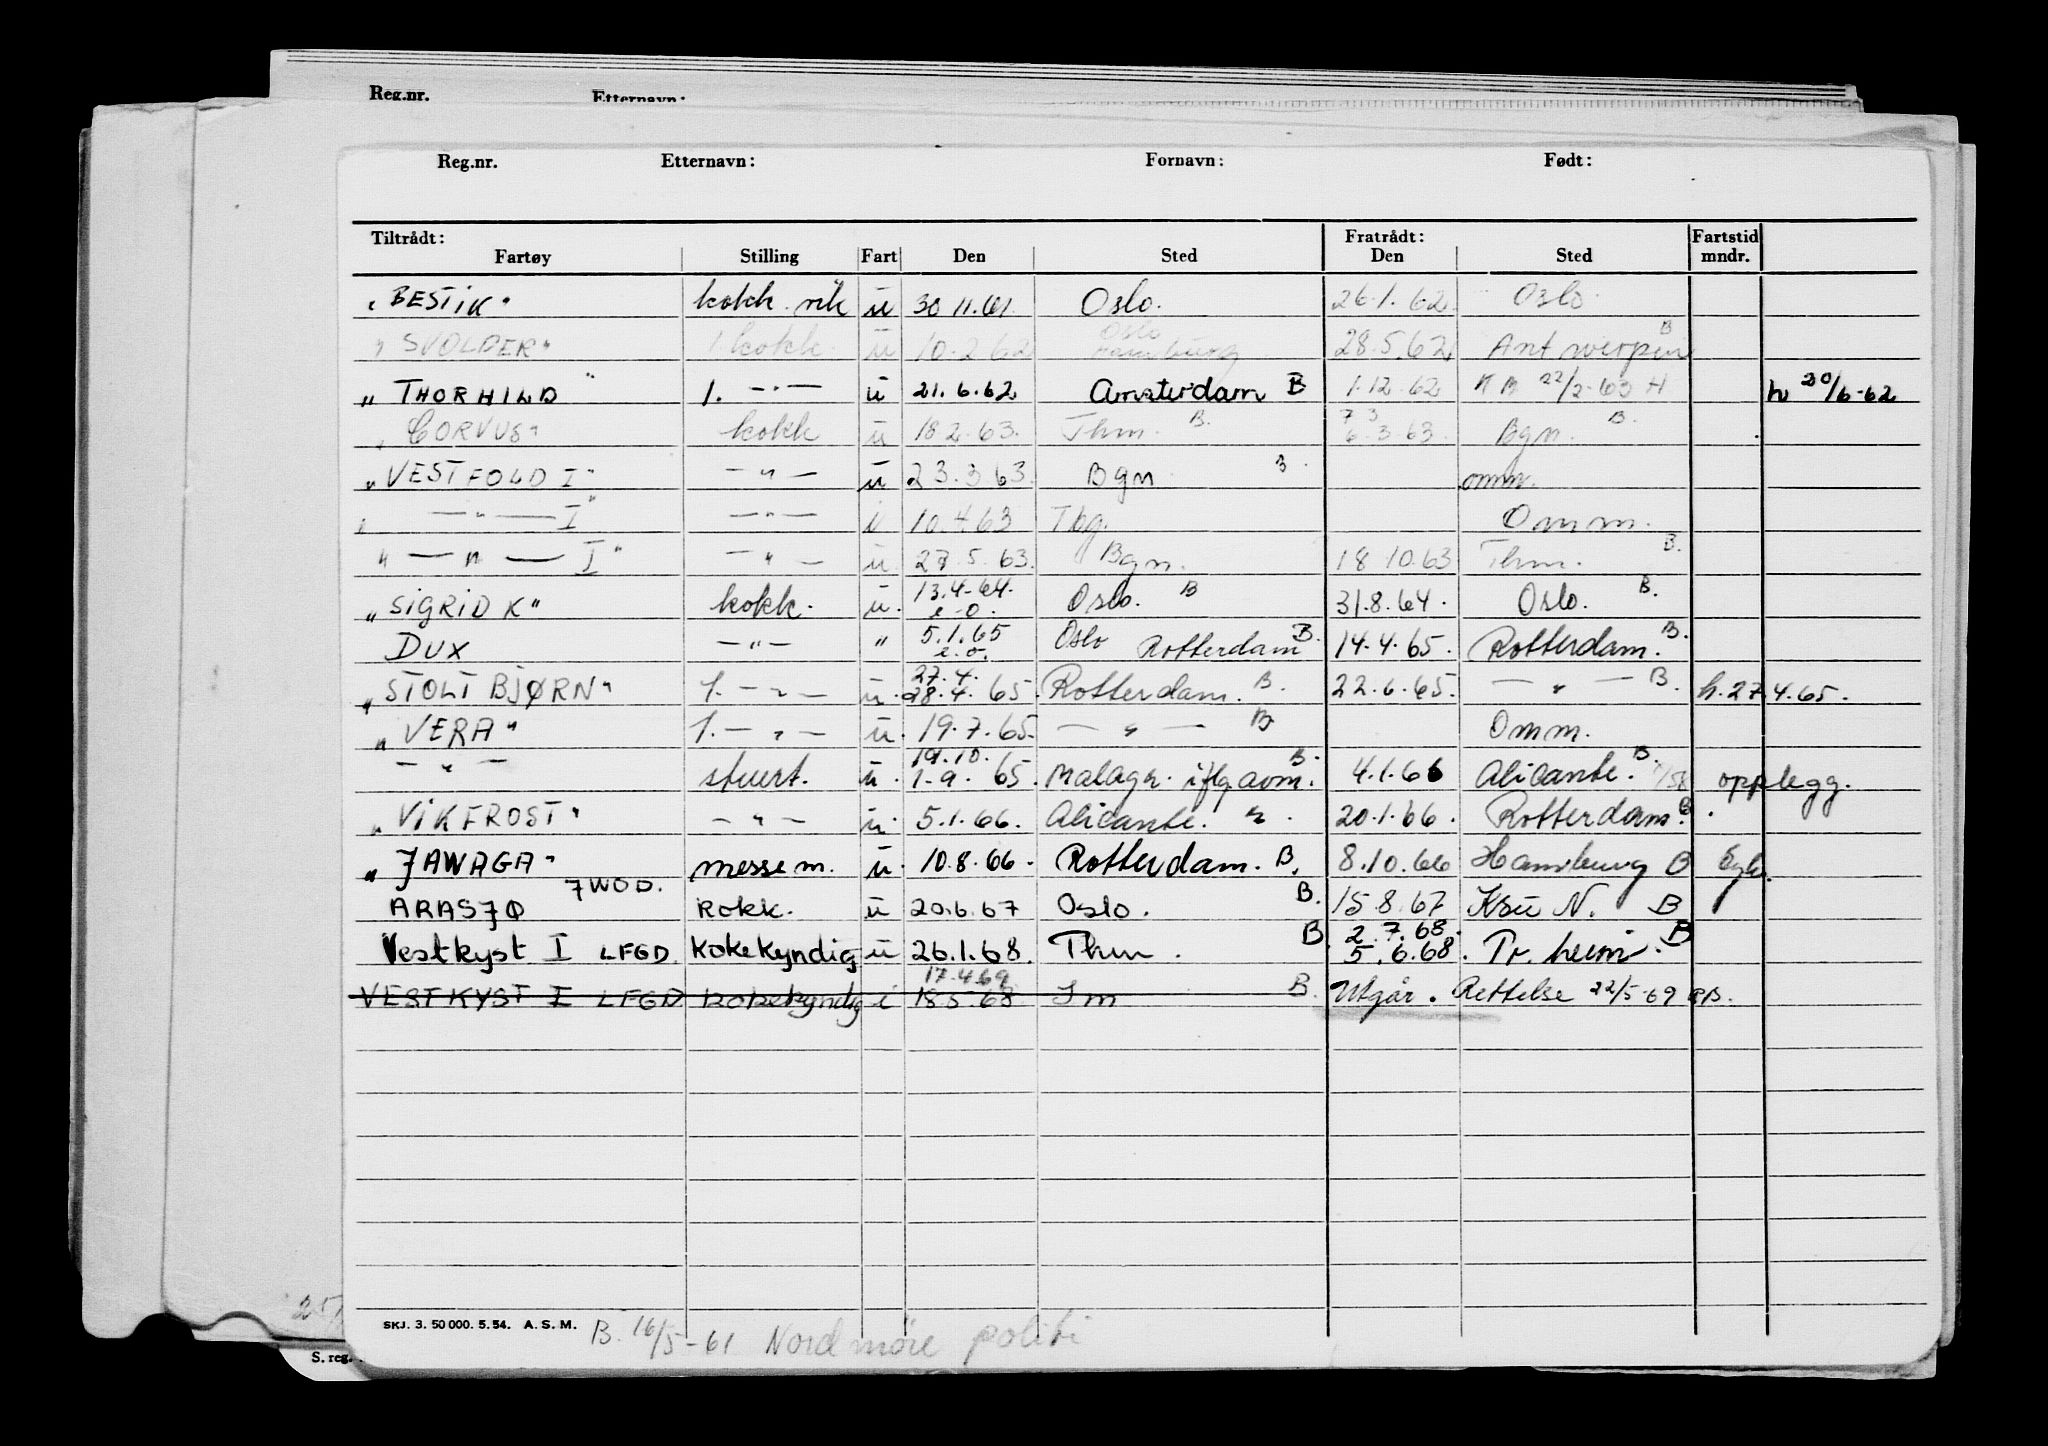 Reg.nr. Etternavn:
Reg.nr. Etternavn: Fornavn: Født:
Tiltrådt: Fratrådt: Fartstid
Fartøy Stilling Fart Den Sted Den Sted mndr.
"BESTIK" kokk u 30 11.61 Oslo. 26.1.62 Oslo.
"SVOLDER" 1 kokk. u 10.2 62 Oslo Hamburg 28.5.62 Antwerpen B
"THORHILD" 1. —"— u 21.6.62 Amsterdam B 1.12.62 22/2-63 H h 20/6-62
"CORVUS" kokk u 18 2.63. Thm. B. 7 3 6.3 63. Bgn. B.
"VESTFOLD I" —"— u 23.3 63. Bgn B. omm.
" —"— I" —"— i 10.4.63 Tbg. Omm.
" —"— I" —"— u 27.5.63. Bgn. 18 10.63 Thm. B.
"SIGRID K" kokk. u. 13.4-64. e.o. Oslo. B 31.8.64. Oslo. B.
DUX —"— " 5.1.65 e.o. Oslo Rotterdam B. 14.4.65. Rotterdam. B.
"STOLT BJØRN" 1. —"— u. 27.4. 28.4.65. Rotterdam. B. 22.6.65. —"— B. h.27.4.65.
"VERA" 1. —"— u. 19.7.65. —"— B Omm.
—"— stuert. u. 19.10. 1-9.65. Malaga. iflg avm. B. 4.1.66 Alicante. B. opplegg.
"VIKFROST" —"— u. 5.1.66. Alicante. " . 20.1.66. Rotterdam. B.
"JAWAGA" messem. u. 10.8.66. Rotterdam. B. 8.10.66 Hamburg B
ARASJØ JWOD. Kokk. u 20.6.67 Oslo. B. 15.8.67 Ksu N. B
Vestkyst I LFGD. Kokekyndig u 26.1.68. Thm. B 2.7.68. 5.6.68. Tr.heim. B
VESTKYST I LFGD kokekyndig i 17.4.69 18.5.68 B. Utgår. Rettelse 22/5-69
SKJ. 3. 50 000. 5. 54. A. S. M. B. 16/5-61 Nordmøre politi
S. reg.